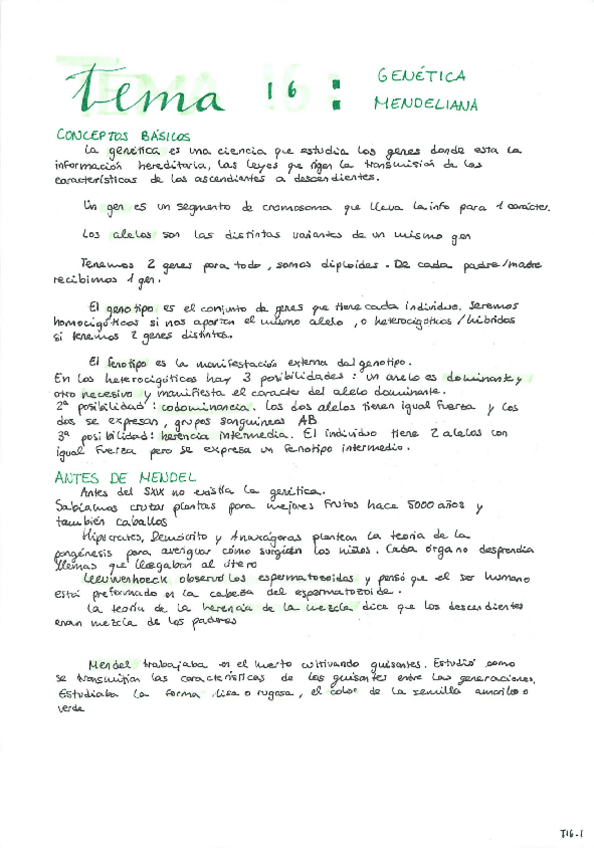 tema 16 : GENÉTICA
MENDELIANA
CONCEPTOS BÁSICOS
La genética es una ciencia que estudia los genes donde esta la
información hereditaria, las leyes que rigen la transmisión de las
características de los ascendientes a descendientes.
Un gen es un segmento de cromosoma que lleva la info para 1 carácter.
Los alelos son las distintas variantes de un mismo gen
Tenemos 2 genes para todo, somos diploides. De cada padre/madre
recibimos 1 gen.
El genotipo es el conjunto de genes que tiene cada individuo. Seremos
homocigóticos si nos aportan el mismo alelo, o heterocigóticos / híbridos
si tenemos 2 genes distintos.
El fenotipo es la manifestación externa del genotipo.
En los heterocigóticos hay 3 posibilidades: un alelo es dominante y
otro recesivo y manifiesta el caracter del alelo dominante.
2ª posibilidad: codominancia. Los dos alelos tienen igual fuerza y los
dos se expresan, grupos sanguíneos AB
3ª posibilidad: herencia intermedia. El individuo tiene 2 alelos con
igual fuerza pero se expresa un fenotipo intermedio.
ANTES DE MENDEL
Antes del SXIX no existía la genética.
Sabíamos cruzar plantas para mejores frutos hace 5000 años y
también caballos
Hipocrates, Demócrito y Anaxágoras plantean la teoría de la
pangénesis para averiguar cómo surgían los niños. Cada órgano desprendía
yemas que llegaban al útero
Leeuwenhoeck observó los espermatozoides y pensó que el ser humano
está preformado en la cabeza del espermatozoide.
La teoría de la herencia de la mezcla dice que los descendientes
eran mezcla de los padres
Mendel trabajaba en el huerto cultivando guisantes. Estudió como
se transmitían las características de los guisantes entre las generaciones.
Estudiaba la forma lisa o rugosa, el color de la semilla amarillo o
verde
T16-1